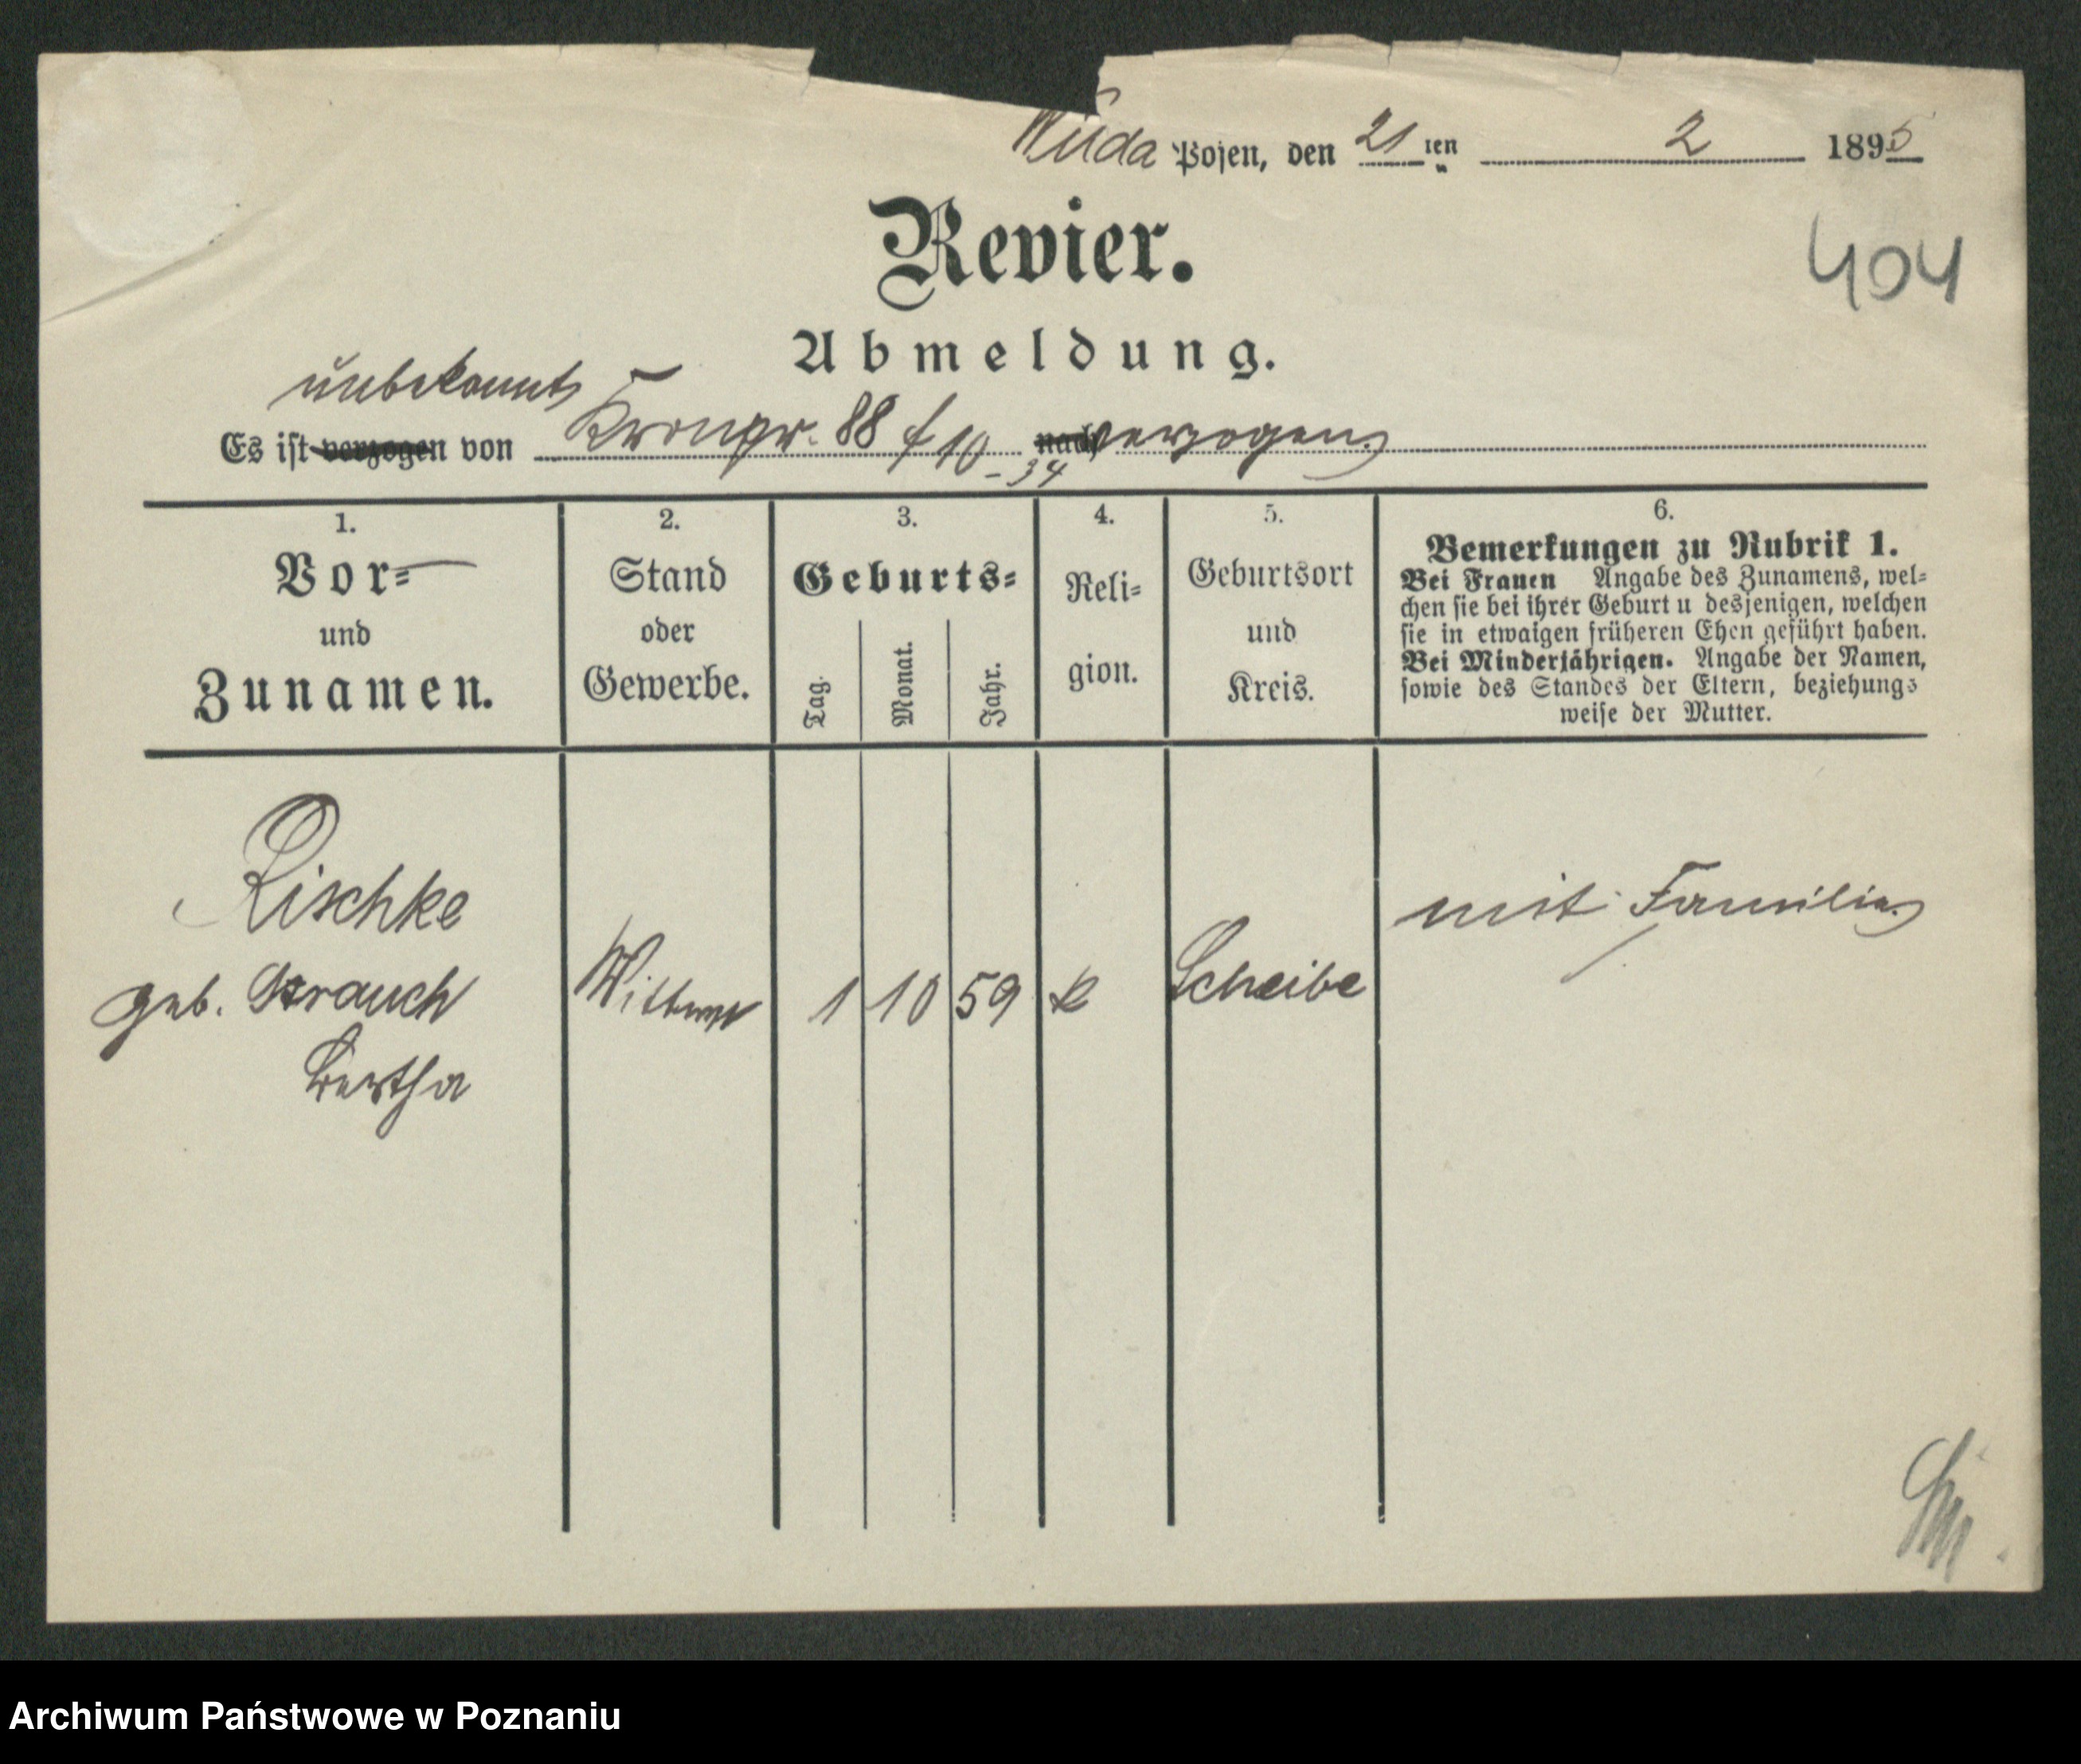 Wilda Posen, den 21ten 2 1895
Revier.
404
Abmeldung.
unbekannt
Es ist verzogen von Kronpr. 88 f 10 nach verzogen
- 34
1.
Vor=
und
Zunamen.
2.
Stand
oder
Gewerbe.
3.
Geburts=
Tag.
Monat.
Jahr.
4.
Reli=
gion.
5.
Geburtsort
und
Kreis.
6.
Bemerkungen zu Rubrik 1.
Bei Frauen Angabe des Zunamens, wel=
chen sie bei ihrer Geburt u desjenigen, welchen
sie in etwaigen früheren Ehen geführt haben.
Bei Minderjährigen. Angabe der Namen,
sowie des Standes der Eltern, beziehungs
weise der Mutter.
Lischke
geb. Strauch
Bertha
Wittwe
1 10 59
k
Scheibe
mit Familie
Archiwum Państwowe w Poznaniu